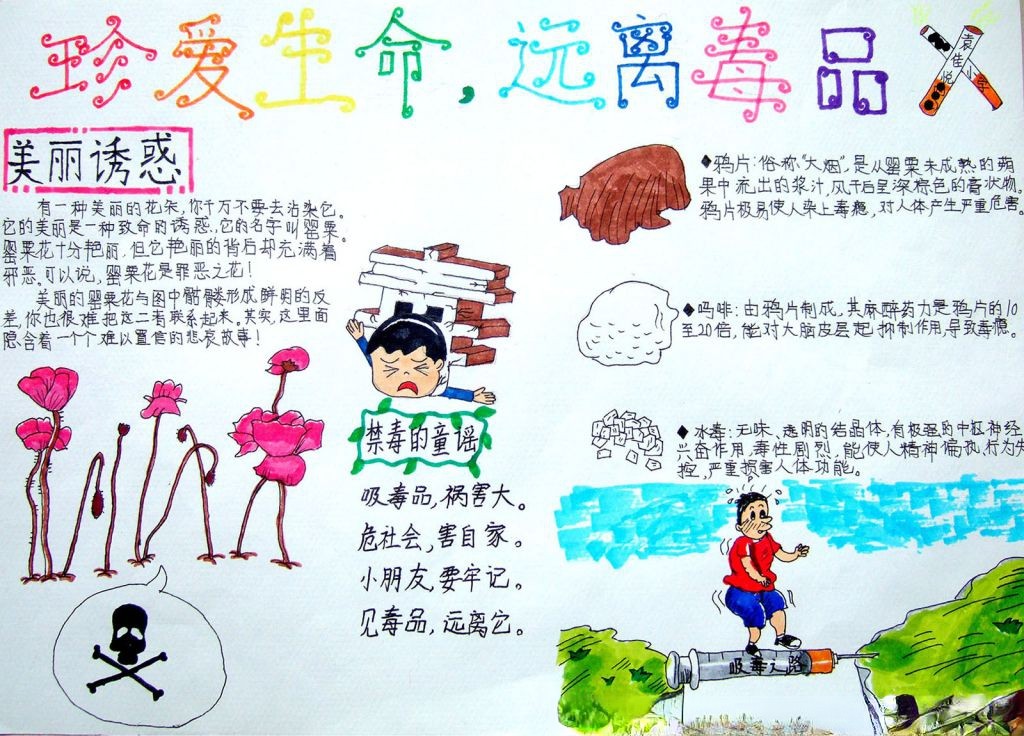 珍爱生命，远离毒品
袁佳悦小学
美丽诱惑
有一种美丽的花朵，你千万不要去沾染它。
它的美丽是一种致命的诱惑，它的名字叫罂粟。
罂粟花十分艳丽，但它艳丽的背后却充满着
邪恶。可以说，罂粟花是罪恶之花！
美丽的罂粟花与图中骷髅形成鲜明的反
差，你也很难把这二者联系起来，其实，这里面
隐含着一个个难以置信的悲哀故事！
禁毒的童谣
吸毒品，祸害大。
危社会，害自家。
小朋友，要牢记。
见毒品，远离它。
◆鸦片：俗称"大烟"，是从罂粟未成熟的蒴
果中流出的浆汁，风干后呈深棕色的膏状物。
鸦片极易使人染上毒瘾，对人体产生严重危害。
◆吗啡：由鸦片制成，其麻醉药力是鸦片的10
至20倍，能对大脑皮层起抑制作用，导致毒瘾。
◆冰毒：无味、透明的结晶体，有极强的中枢神经
兴奋作用，毒性剧烈，能使人精神偏执，行为失
控，严重损害人体功能。
吸毒之路